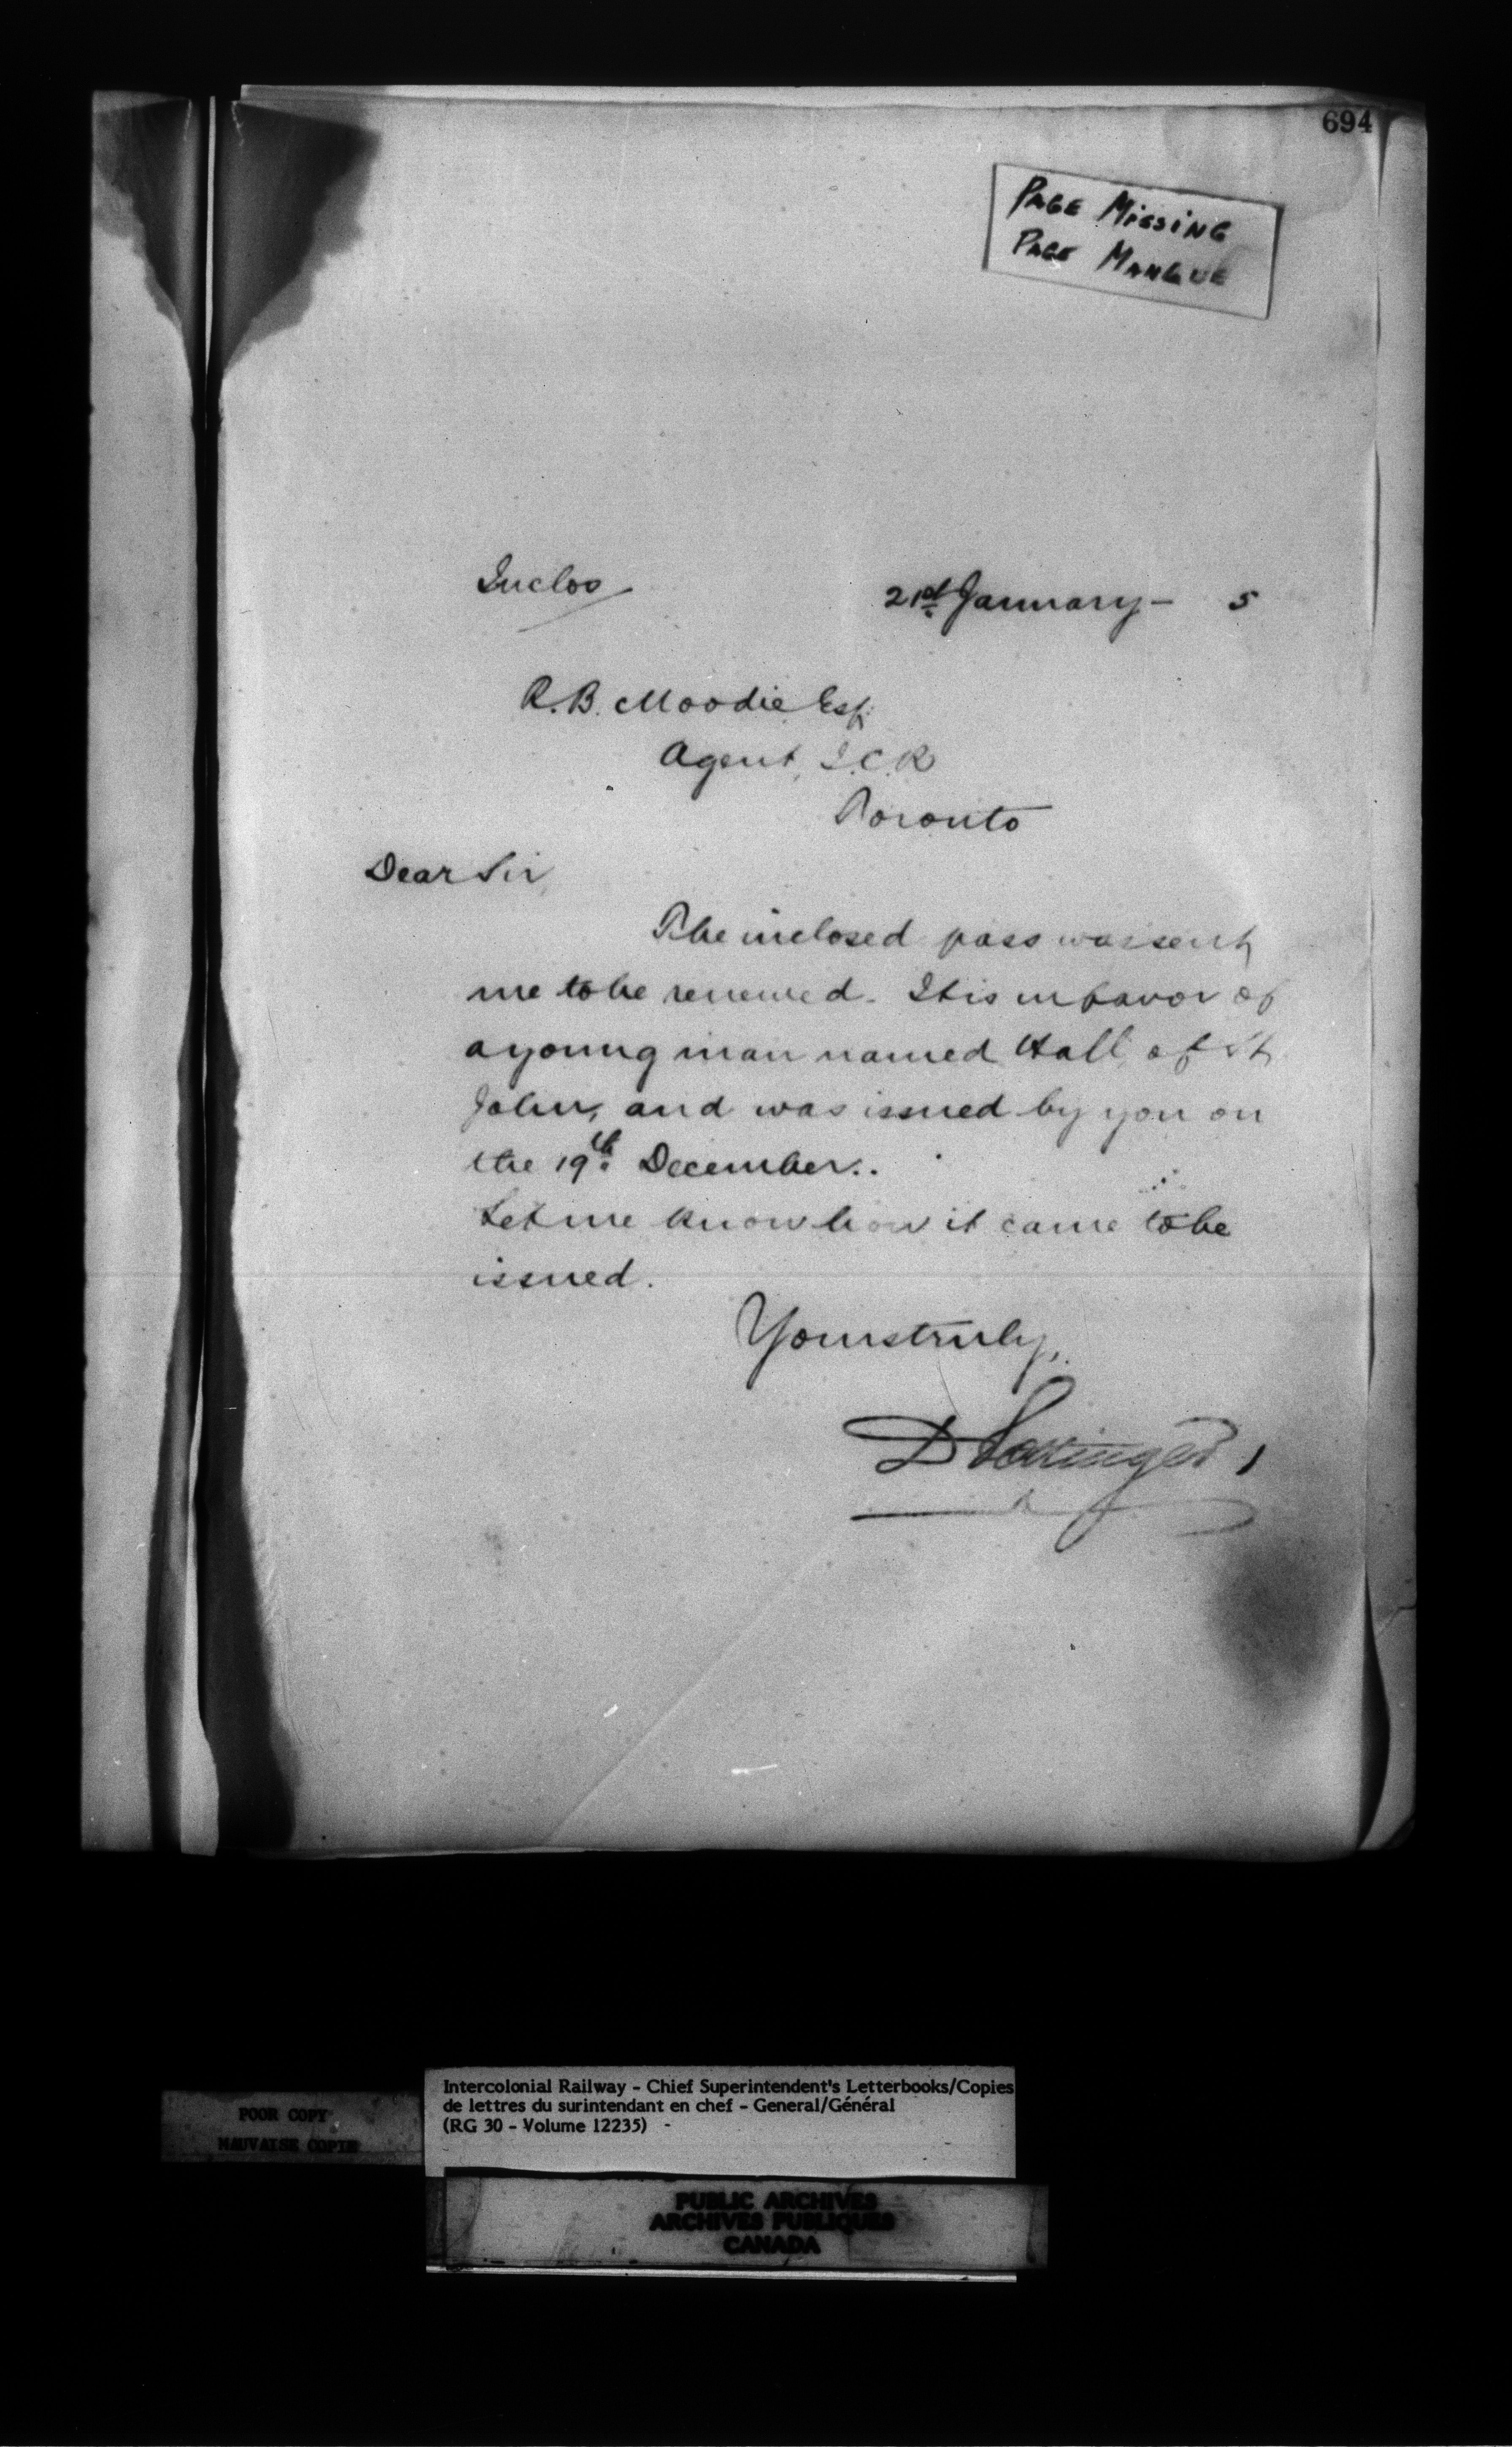 694
PAGE MISSING
PAGE MANQUE
Inclos
21st January – 5
R. B. Moodie Esq.
Agent, I.C.R
Toronto
Dear Sir,
The inclosed pass was sent
me to be renewed. It is in favor of
a young man named Hall, of St.
John, and was issued by you on
the 19th December.
Let me know how it came to be
issued.
Yours truly,
D Pottinger
POOR COPY
MAUVAISE COPIE
Intercolonial Railway - Chief Superintendent's Letterbooks/Copies
de lettres du surintendant en chef - General/Général
(RG 30 - Volume 12235) -
PUBLIC ARCHIVES
ARCHIVES PUBLIQUES
CANADA